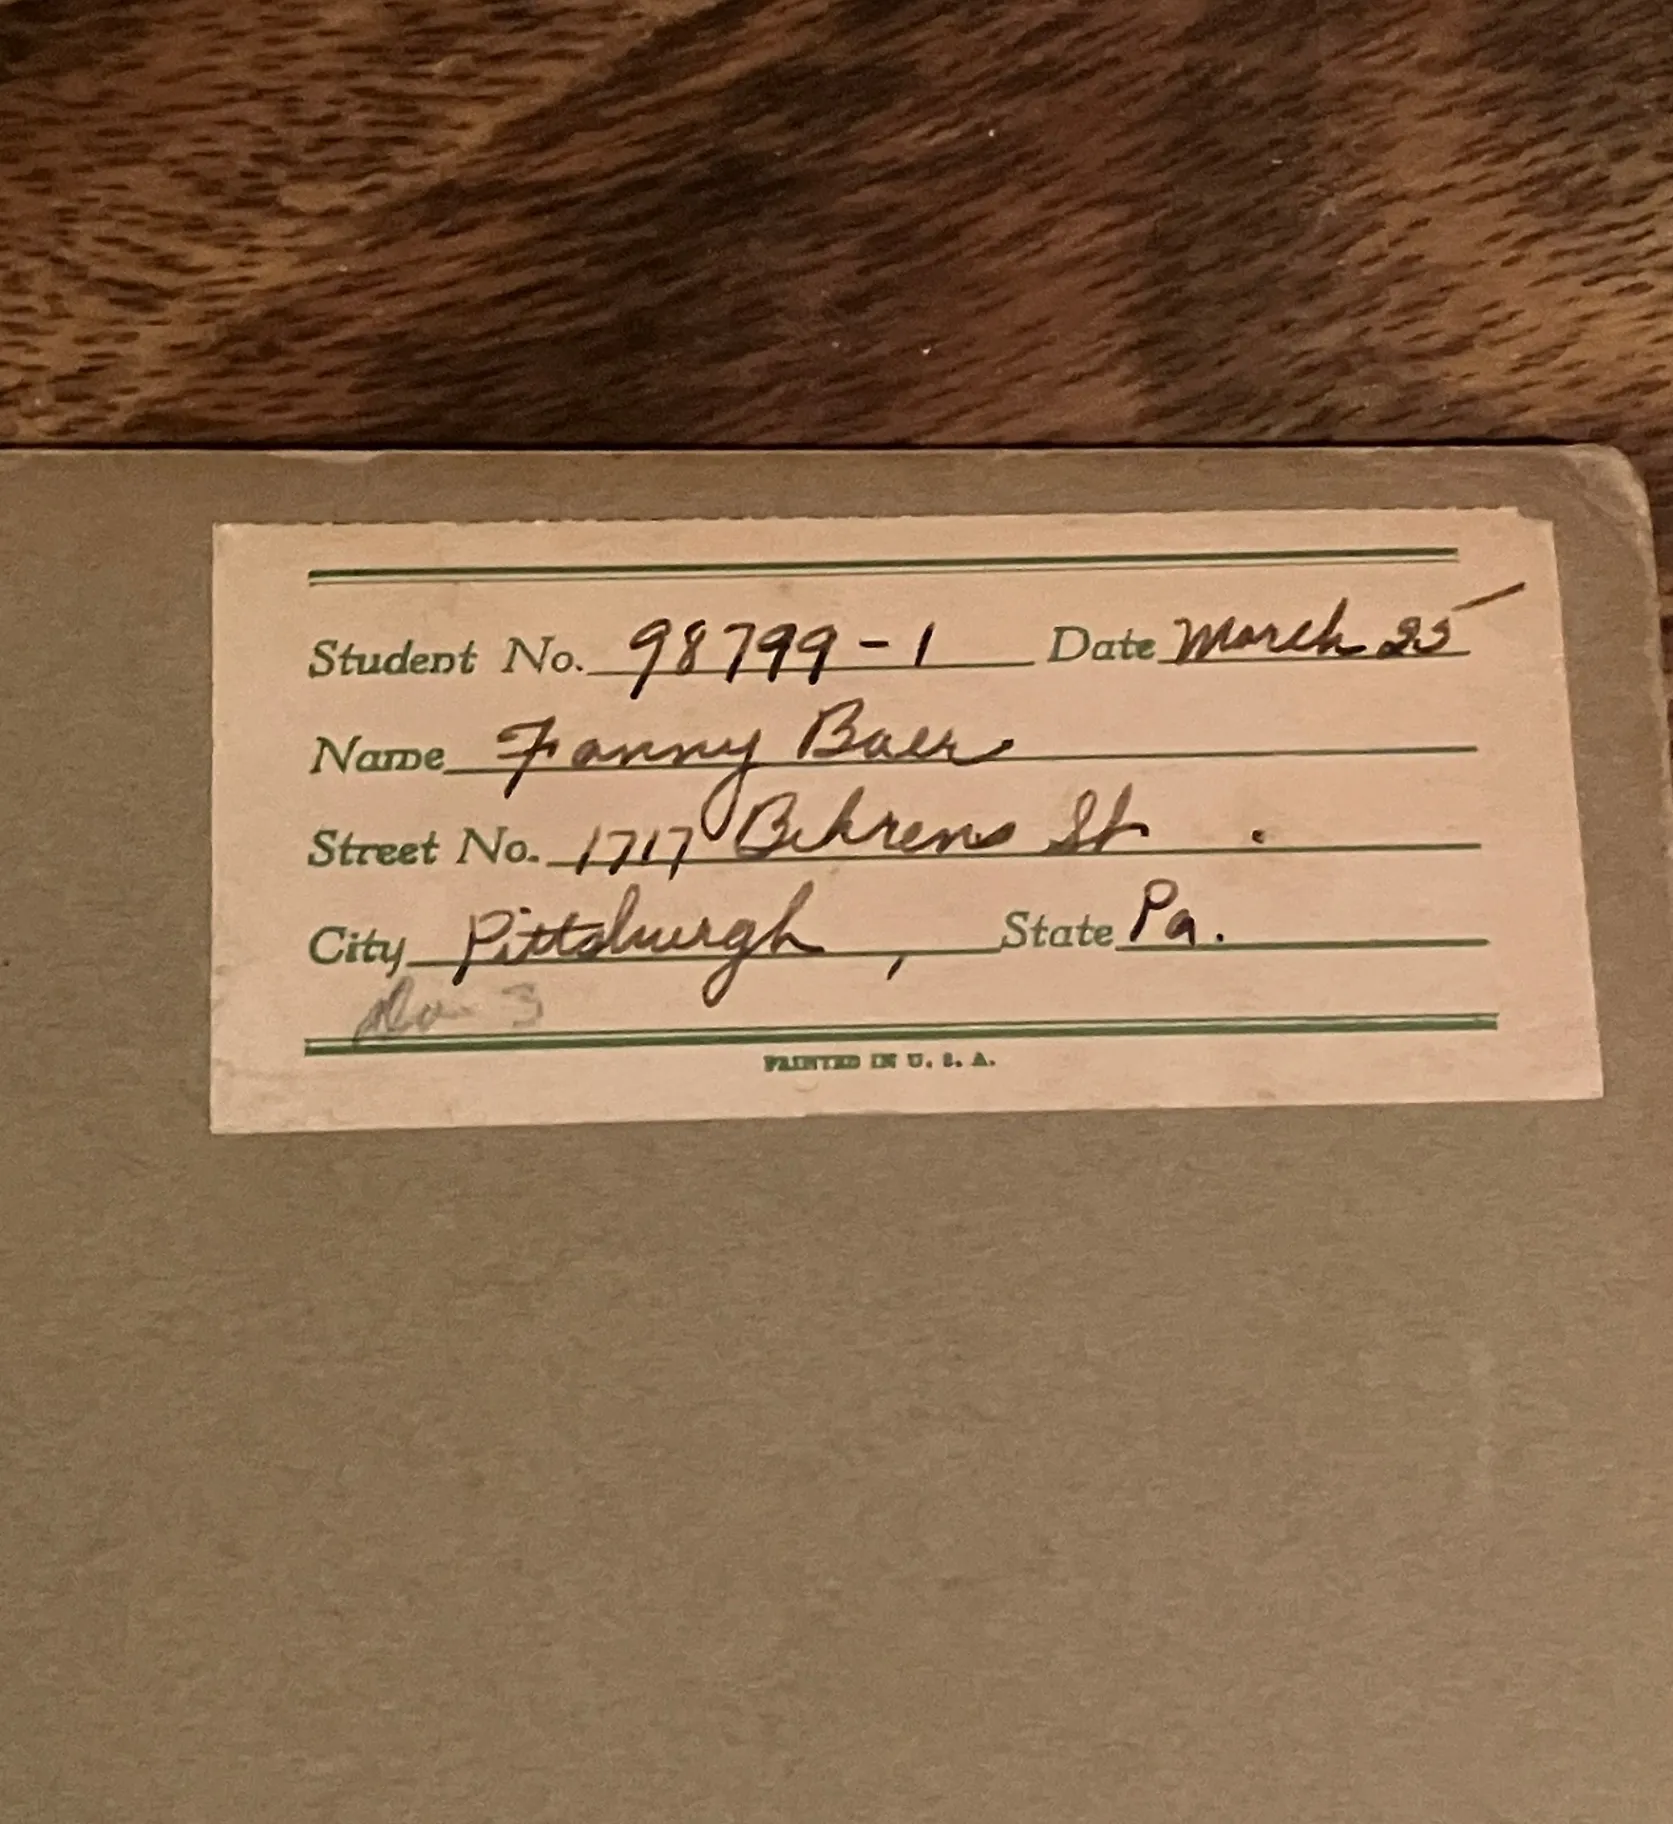 Student No. 98799-1 Date March 25
Name Fanny Baer
Street No. 1717 Behrens St.
City Pittsburgh, State Pa.
No. 3
PRINTED IN U. S. A.